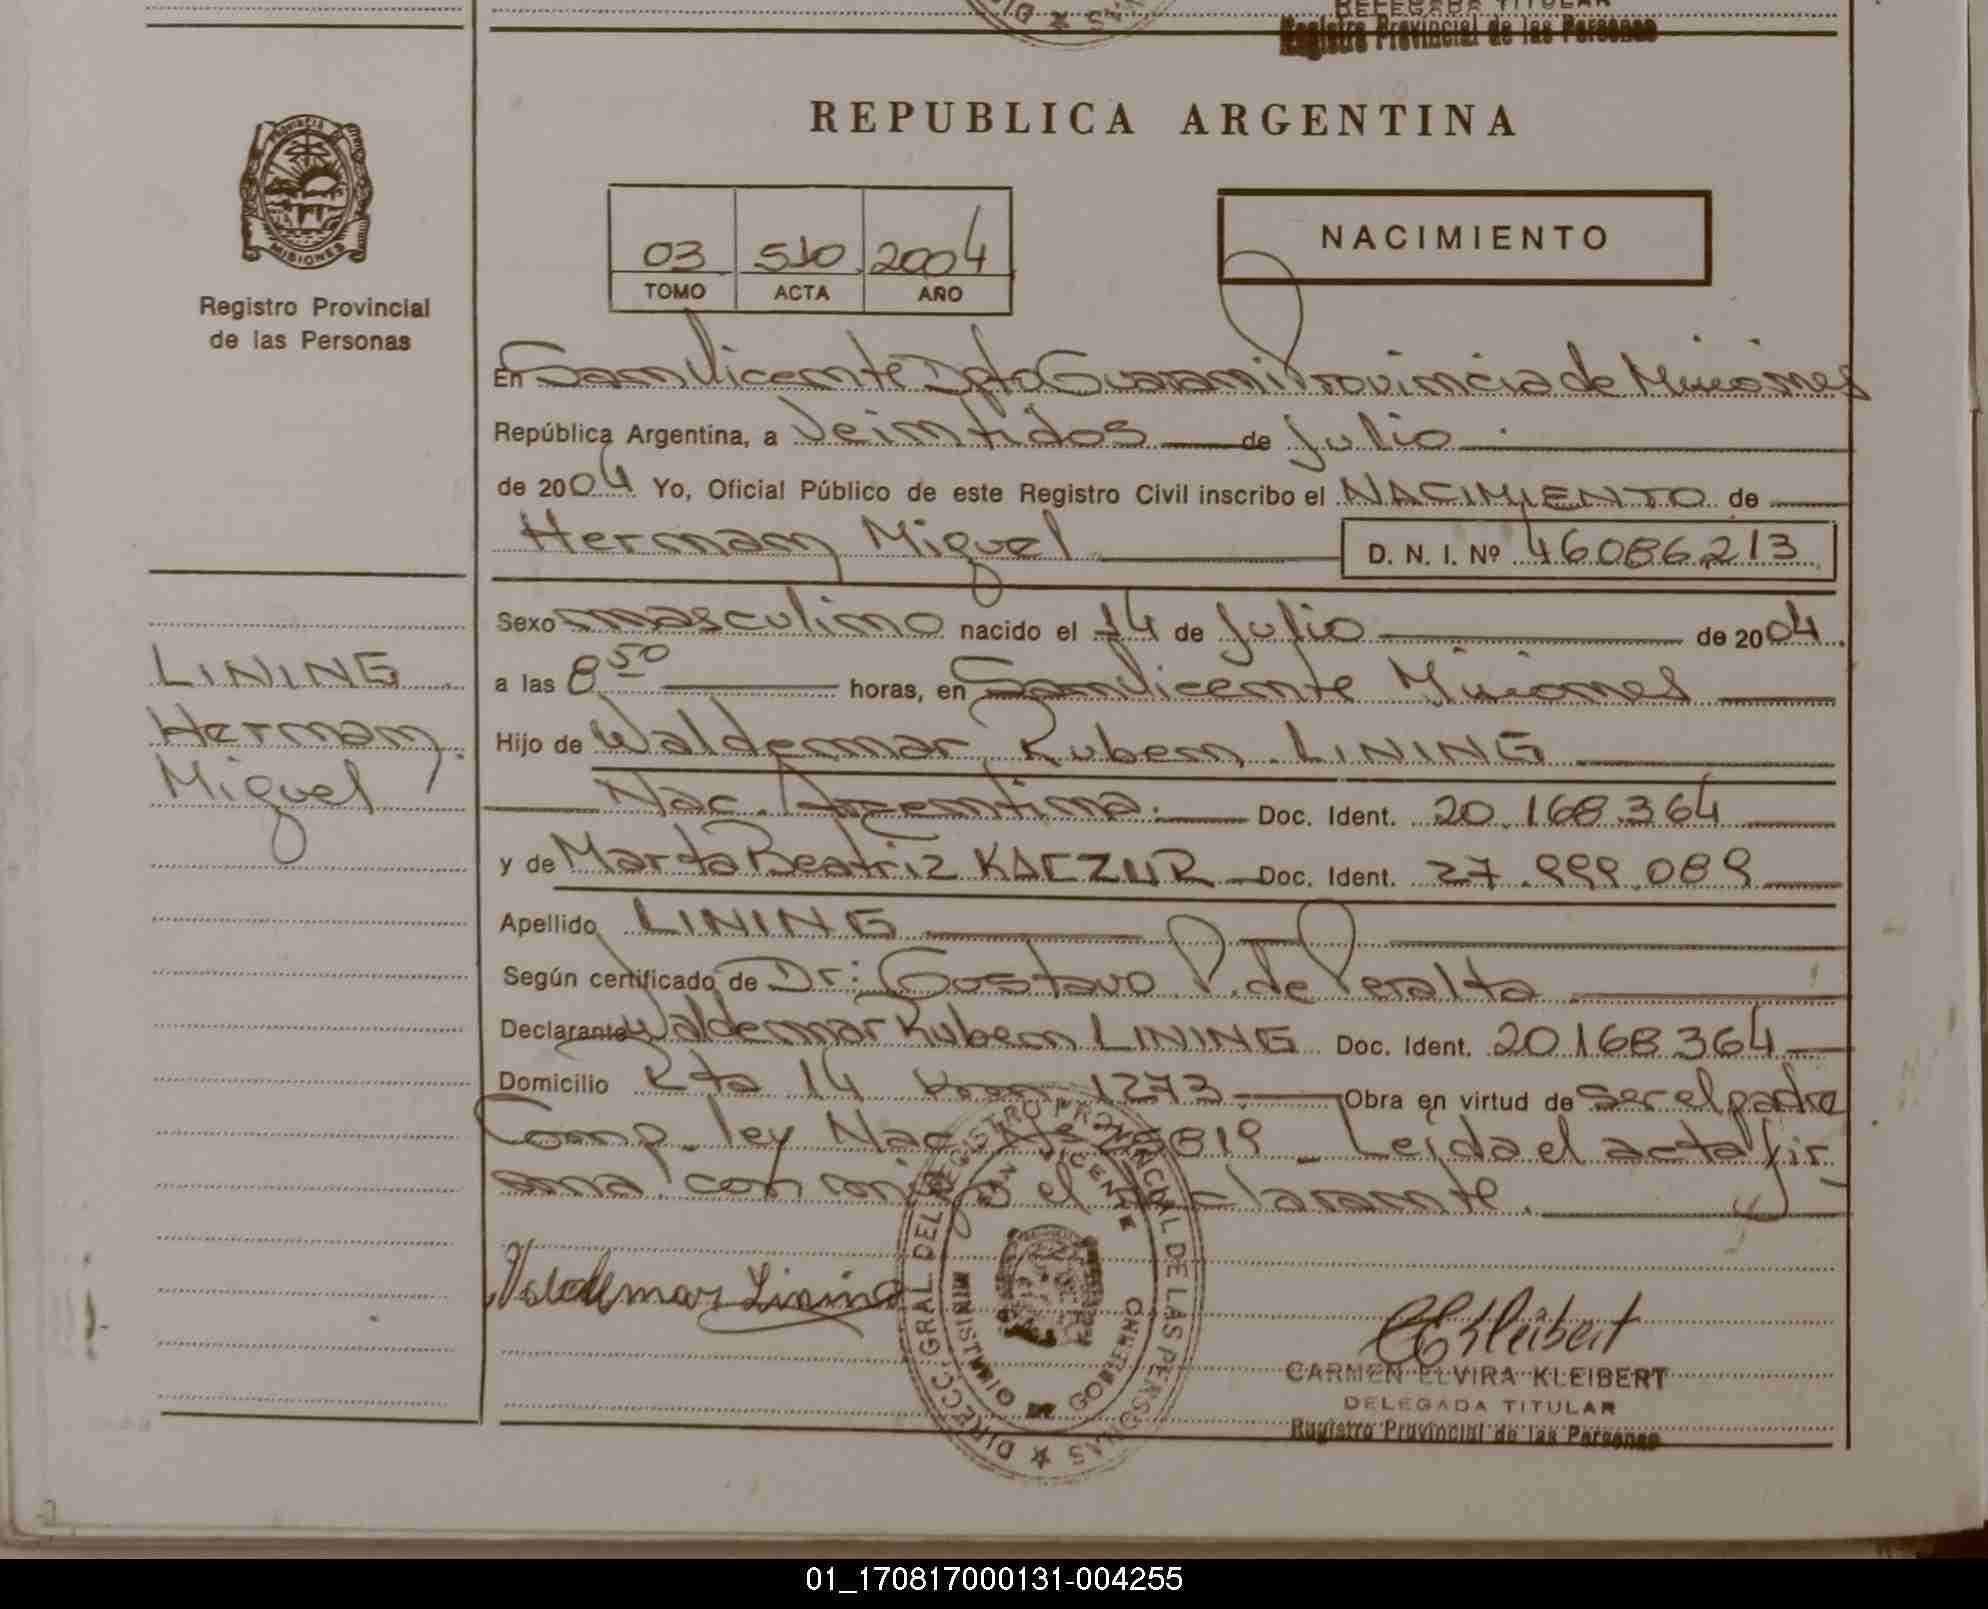 DELEGADA TITULAR
Registro Provincial de las Personas
PROVINCIA DE
MISIONES
Registro Provincial
de las Personas
REPUBLICA ARGENTINA
03 510 2004
TOMO ACTA AÑO
NACIMIENTO
En San Vicente Dpto Guarani Provincia de Misiones
República Argentina, a Veintidos de Julio
de 2004 Yo, Oficial Público de este Registro Civil inscribo el NACIMIENTO de
Herman Miguel D. N. I. Nº 46086213
Sexo masculino nacido el 14 de Julio de 2004
a las 8 50 horas, en San Vicente Misiones
Hijo de Waldemar Ruben LINING
Nac. Argentina. Doc. Ident. 20.168.364
y de Marta Beatriz KACZUR Doc. Ident. 27.999.089
Apellido LINING
Según certificado de Dr: Gustavo P. de Peralta
Declarante Waldemar Ruben LINING Doc. Ident. 20168364
Domicilio Rta 14 Km 1273 Obra en virtud de ser el padre
Comp. ley Nac Nº 25819 _ Leida el acta fir
ma conmigo el declarante.
LINING
Herman
Miguel
Valdemar Lining
DIRECC. GRAL DEL REGISTRO PROVINCIAL DE LAS PERSONAS
SAN VICENTE
MINISTERIO DE GOBIERNO
CEKleibert
CARMEN ELVIRA KLEIBERT
DELEGADA TITULAR
Registro Provincial de las Personas
01_170817000131-004255